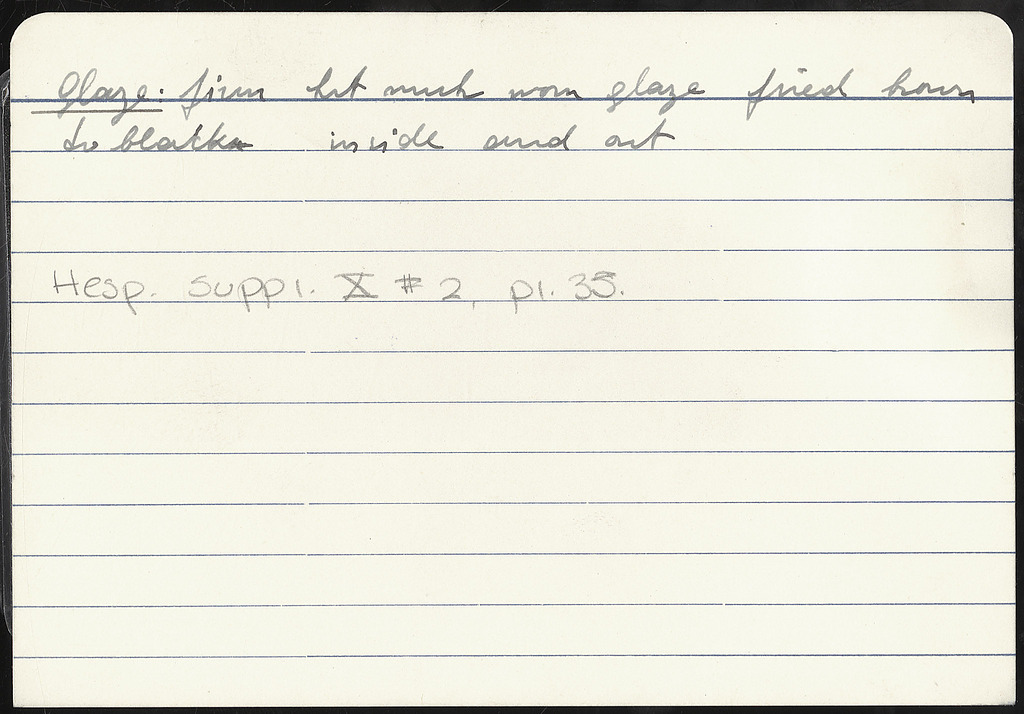 Glaze: firm but much worn glaze fried brown
to black inside and out
Hesp. suppl. X # 2, pl. 35.